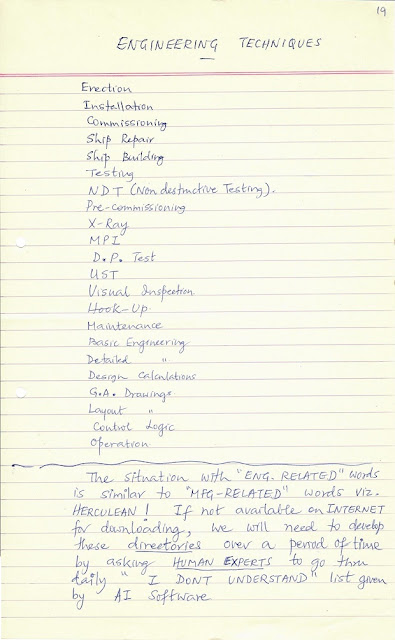 19
ENGINEERING TECHNIQUES
Erection
Installation
Commissioning
Ship Repair
Ship Building
Testing
NDT (Non destructive Testing).
Pre-commissioning
X-Ray
MPI
D.P. Test
UST
Visual Inspection
Hook-Up
Maintenance
Basic Engineering
Detailed "
Design Calculations
G.A. Drawings
Layout "
Control Logic
Operation
The situation with "ENG. RELATED" words
is similar to "MFG-RELATED" words viz.
HERCULEAN! If not available on INTERNET
for downloading, we will need to develop
these directories over a period of time
by asking HUMAN EXPERTS to go thru
daily "I DONT UNDERSTAND" list given
by AI Software